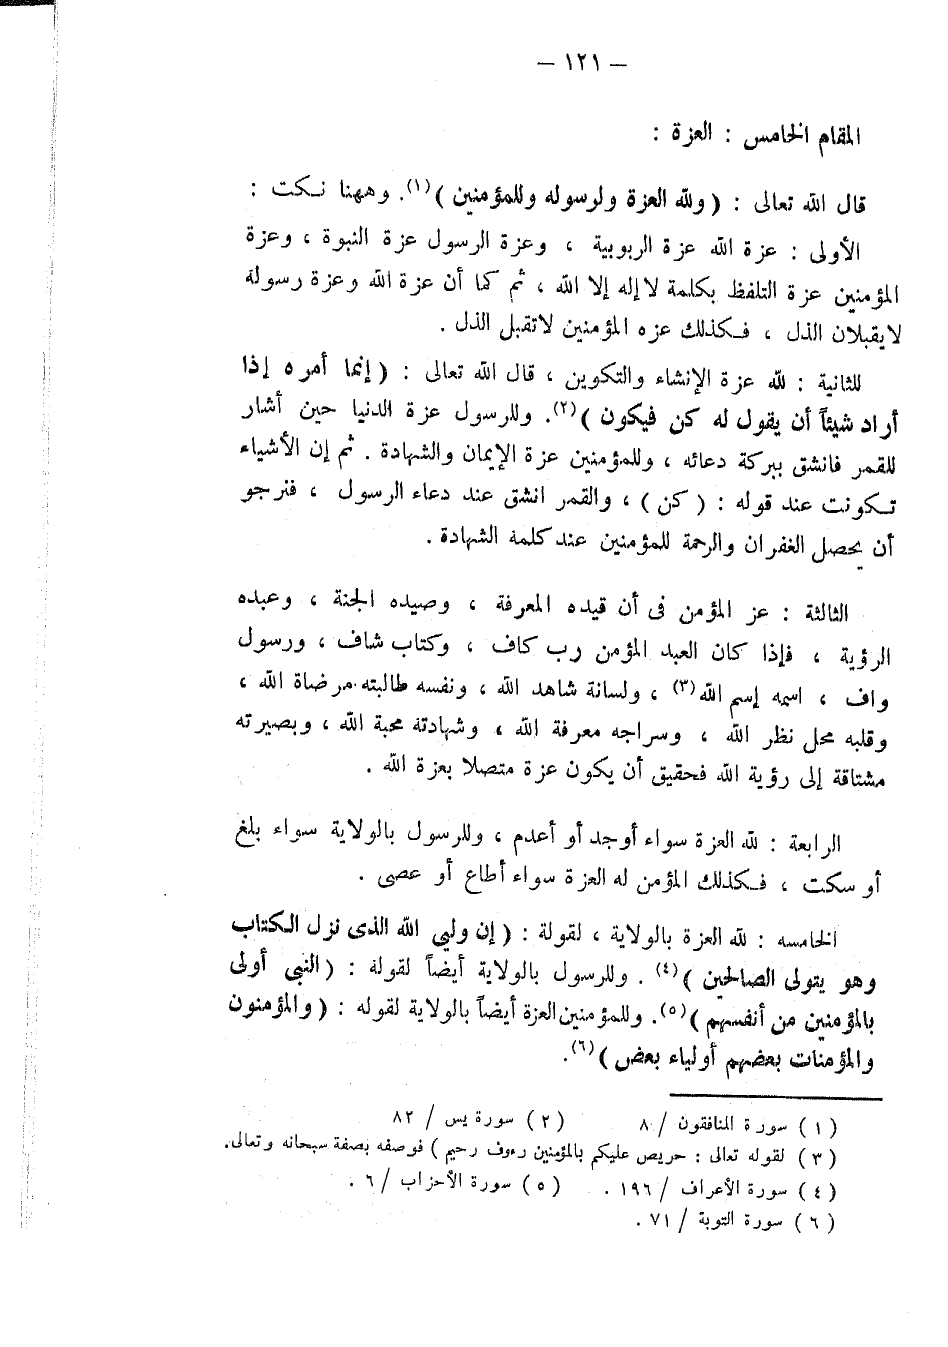 — ١٢١ —
المقام الخامس : العزة :
قال الله تعالى : ( ولله العزة ولرسوله وللمؤمنين )(١). وههنا نكت :
الأولى : عزة الله عزة الربوبية ، وعزة الرسول عزة النبوة ، وعزة
المؤمنين عزة التلفظ بكلمة لا إله إلا الله ، ثم كما أن عزة الله وعزة رسوله
لا يقبلان الذل ، فكذلك عزه المؤمنين لاتقبل الذل .
للثانية : لله عزة الإنشاء والتكوين ، قال الله تعالى : ( إنما أمره إذا
أراد شيئاً أن يقول له كن فيكون )(٢). وللرسول عزة الدنيا حين أشار
للقمر فانشق ببركة دعائه ، وللمؤمنين عزة الإيمان والشهادة . ثم إن الأشياء
تكونت عند قوله : ( كن ) ، والقمر انشق عند دعاء الرسول ، فنرجو
أن يحصل الغفران والرحمة للمؤمنين عند كلمة الشهادة .
الثالثة : عز المؤمن فى أن قيده المعرفة ، وصيده الجنة ، وعبده
الرؤية ، فإذا كان العبد المؤمن رب كاف ، وكتاب شاف ، ورسول
واف ، اسمه إسم الله(٣) ، ولسانة شاهد الله ، ونفسه طالبته مرضاة الله ،
وقلبه محل نظر الله ، وسراجه معرفة الله ، وشهادته محبة الله ، وبصيرته
مشتاقة إلى رؤية الله فحقيق أن يكون عزة متصلا بعزة الله .
الرابعة : لله العزة سواء أوجد أو أعدم ، وللرسول بالولاية سواء بلغ
أو سكت ، فكذلك المؤمن له العزة سواء أطاع أو عصى .
الخامسه : لله العزة بالولاية ، لقولة : ( إن وليي الله الذى نزل الكتاب
وهو يتولى الصالحين )(٤) . وللرسول بالولاية أيضاً لقولة : ( النبي أولى
بالمؤمنين من أنفسهم )(٥). وللمؤمنين العزة أيضاً بالولاية لقوله : ( والمؤمنون
والمؤمنات بعضهم أولياء بعض )(٦).
( ١ ) سورة المنافقون / ٨ ( ٢ ) سورة يس / ٨٢
( ٣ ) لقوله تعالى : حريص عليكم بالمؤمنين رءوف رحيم ) فوصفه بصفة سبحانه وتعالى.
( ٤ ) سورة الأعراف / ١٩٦ . ( ٥ ) سورة الأحزاب / ٦ .
( ٦ ) سورة التوبة / ٧١ .